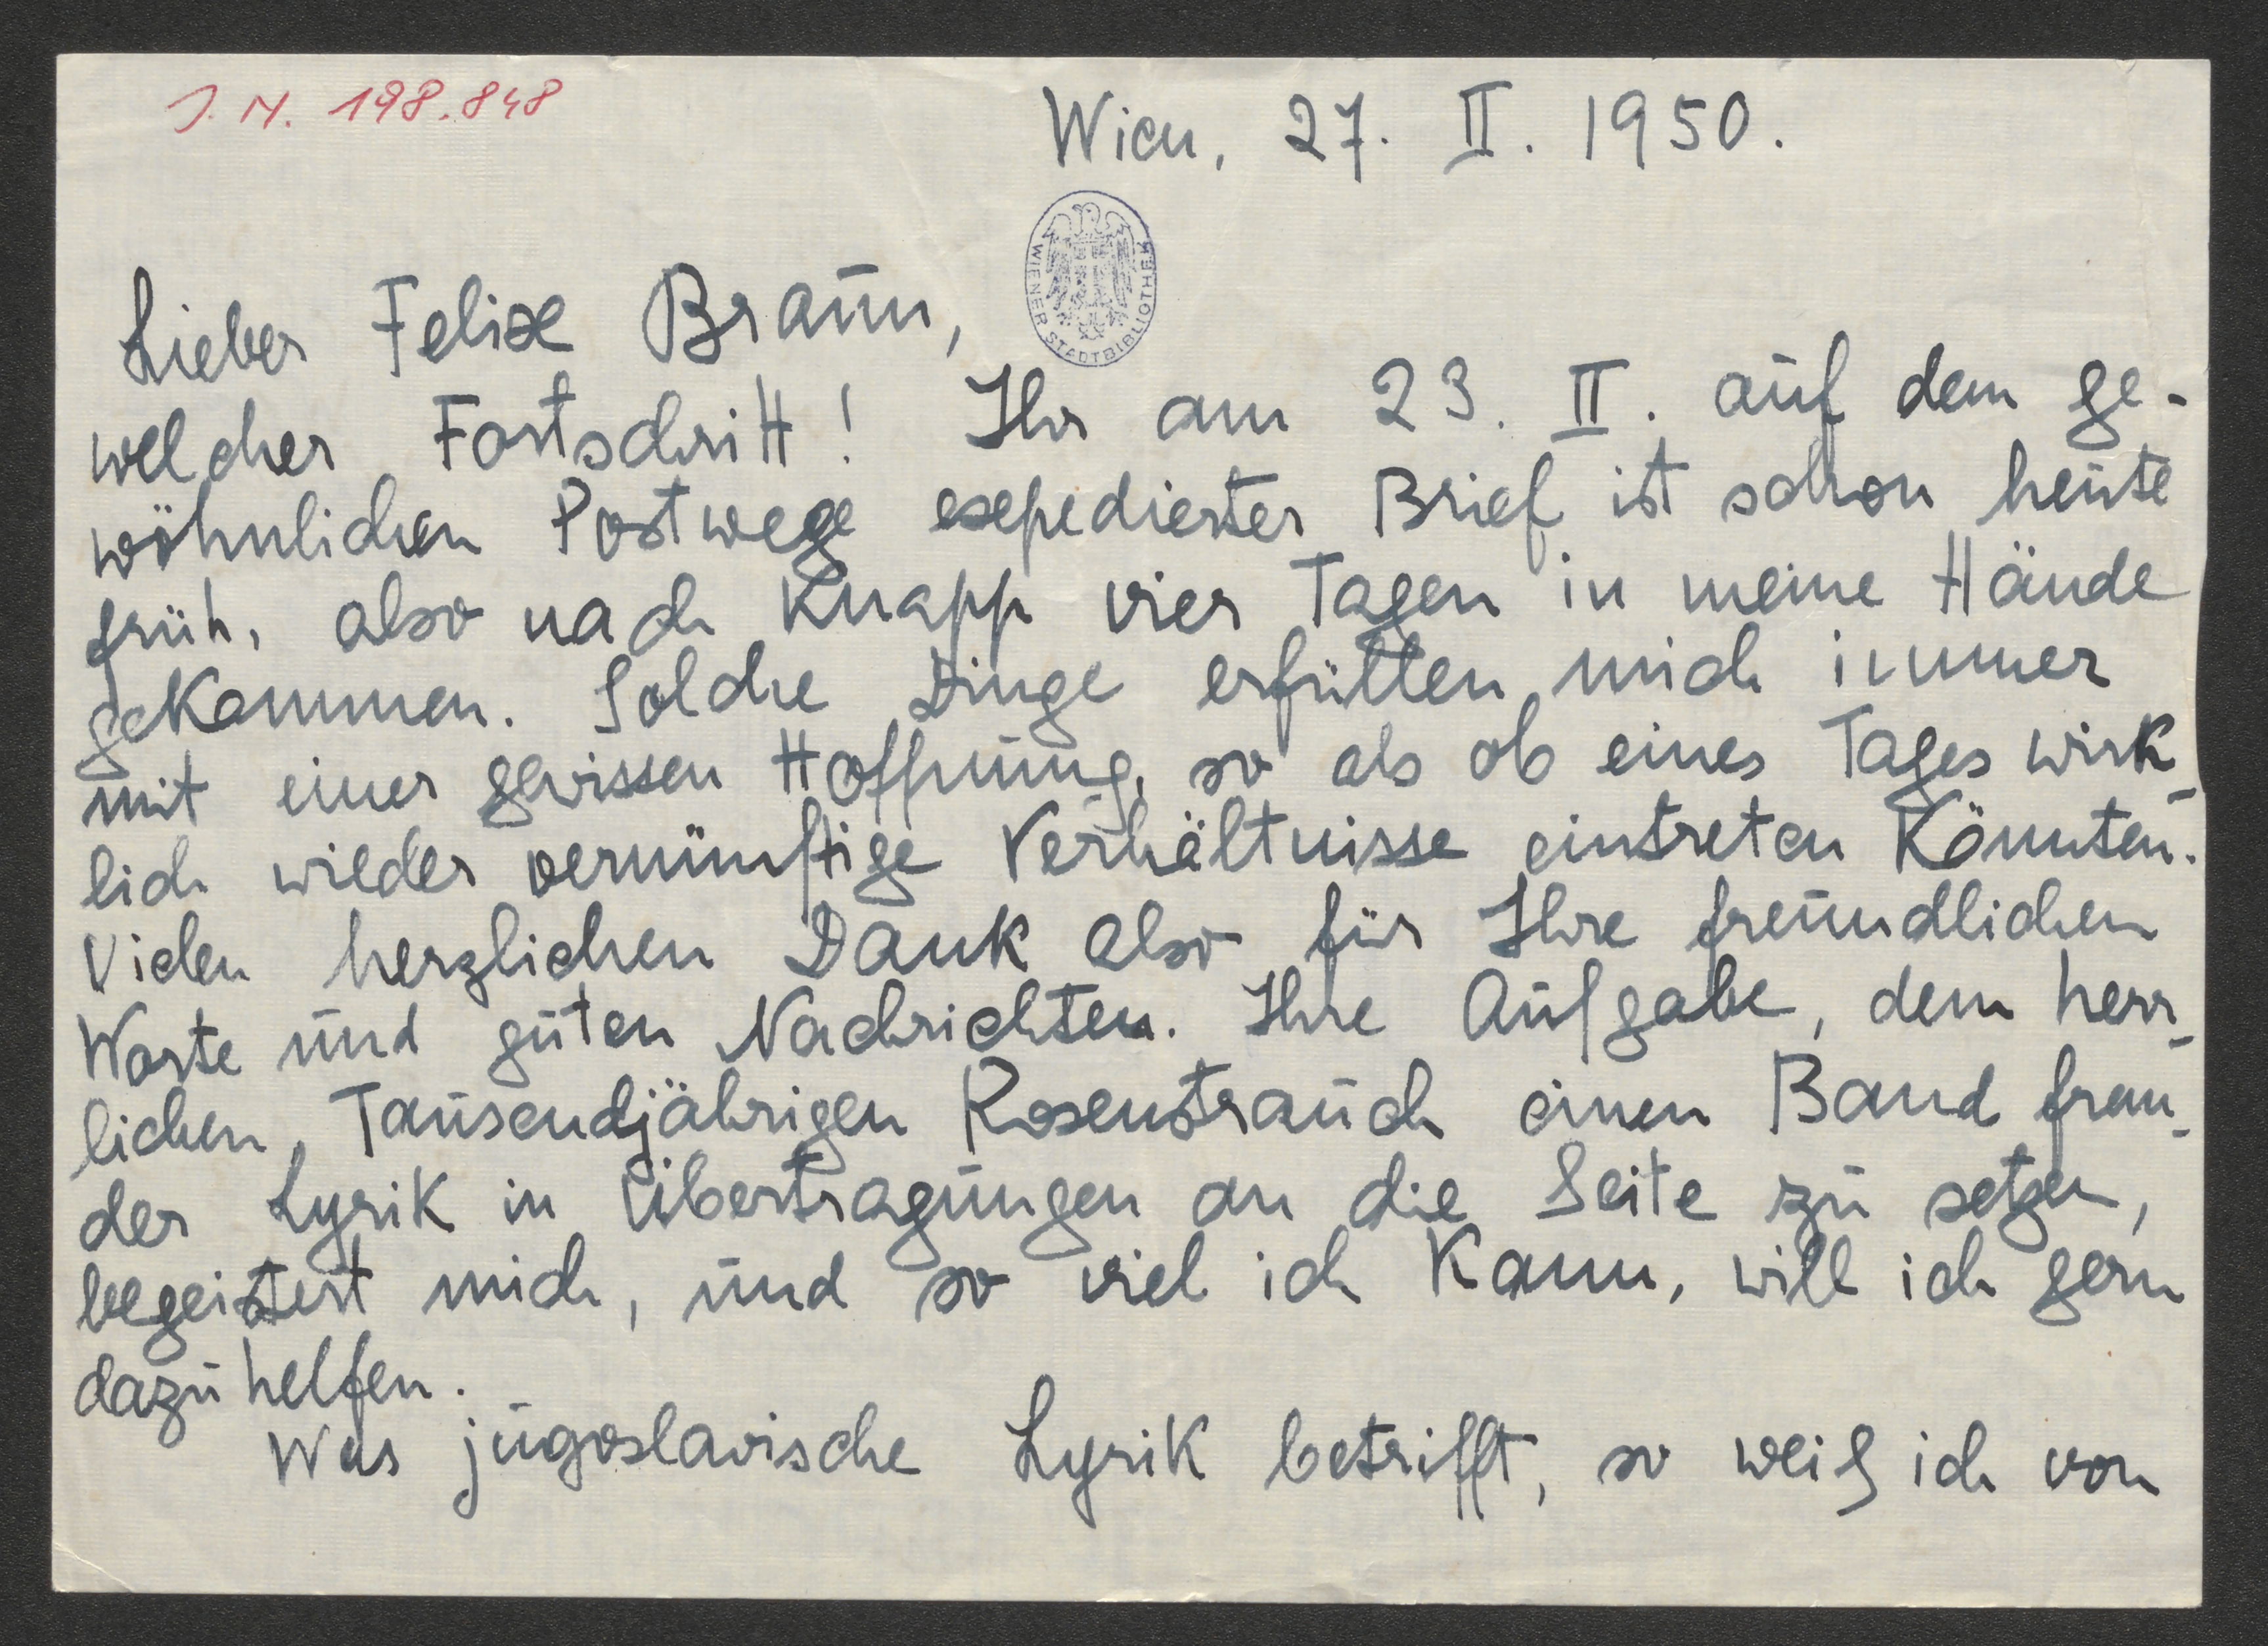 J. N. 198.848
Wien, 27. II. 1950.
WIENER STADTBIBLIOTHEK
Lieber Felix Braun,
welcher Fortschritt! Ihr am 23. II. auf dem ge-
wöhnlichen Postwege expedierter Brief ist schon heute
früh, also nach knapp vier Tagen in meine Hände
gekommen. Solche Dinge erfüllen mich immer
mit einer gewissen Hoffnung, so als ob eines Tages wirk-
lich wieder vernünftige Verhältnisse eintreten könnten.
Vielen herzlichen Dank also für Ihre freundlichen
Worte und guten Nachrichten. Ihre Aufgabe, dem herr-
lichen Tausendjährigen Rosenstrauch einen Band frem-
der Lyrik in Übertragungen an die Seite zu setzen,
begeistert mich, und so viel ich kann, will ich gern
dazu helfen.
Was jugoslavische Lyrik betrifft, so weiß ich von